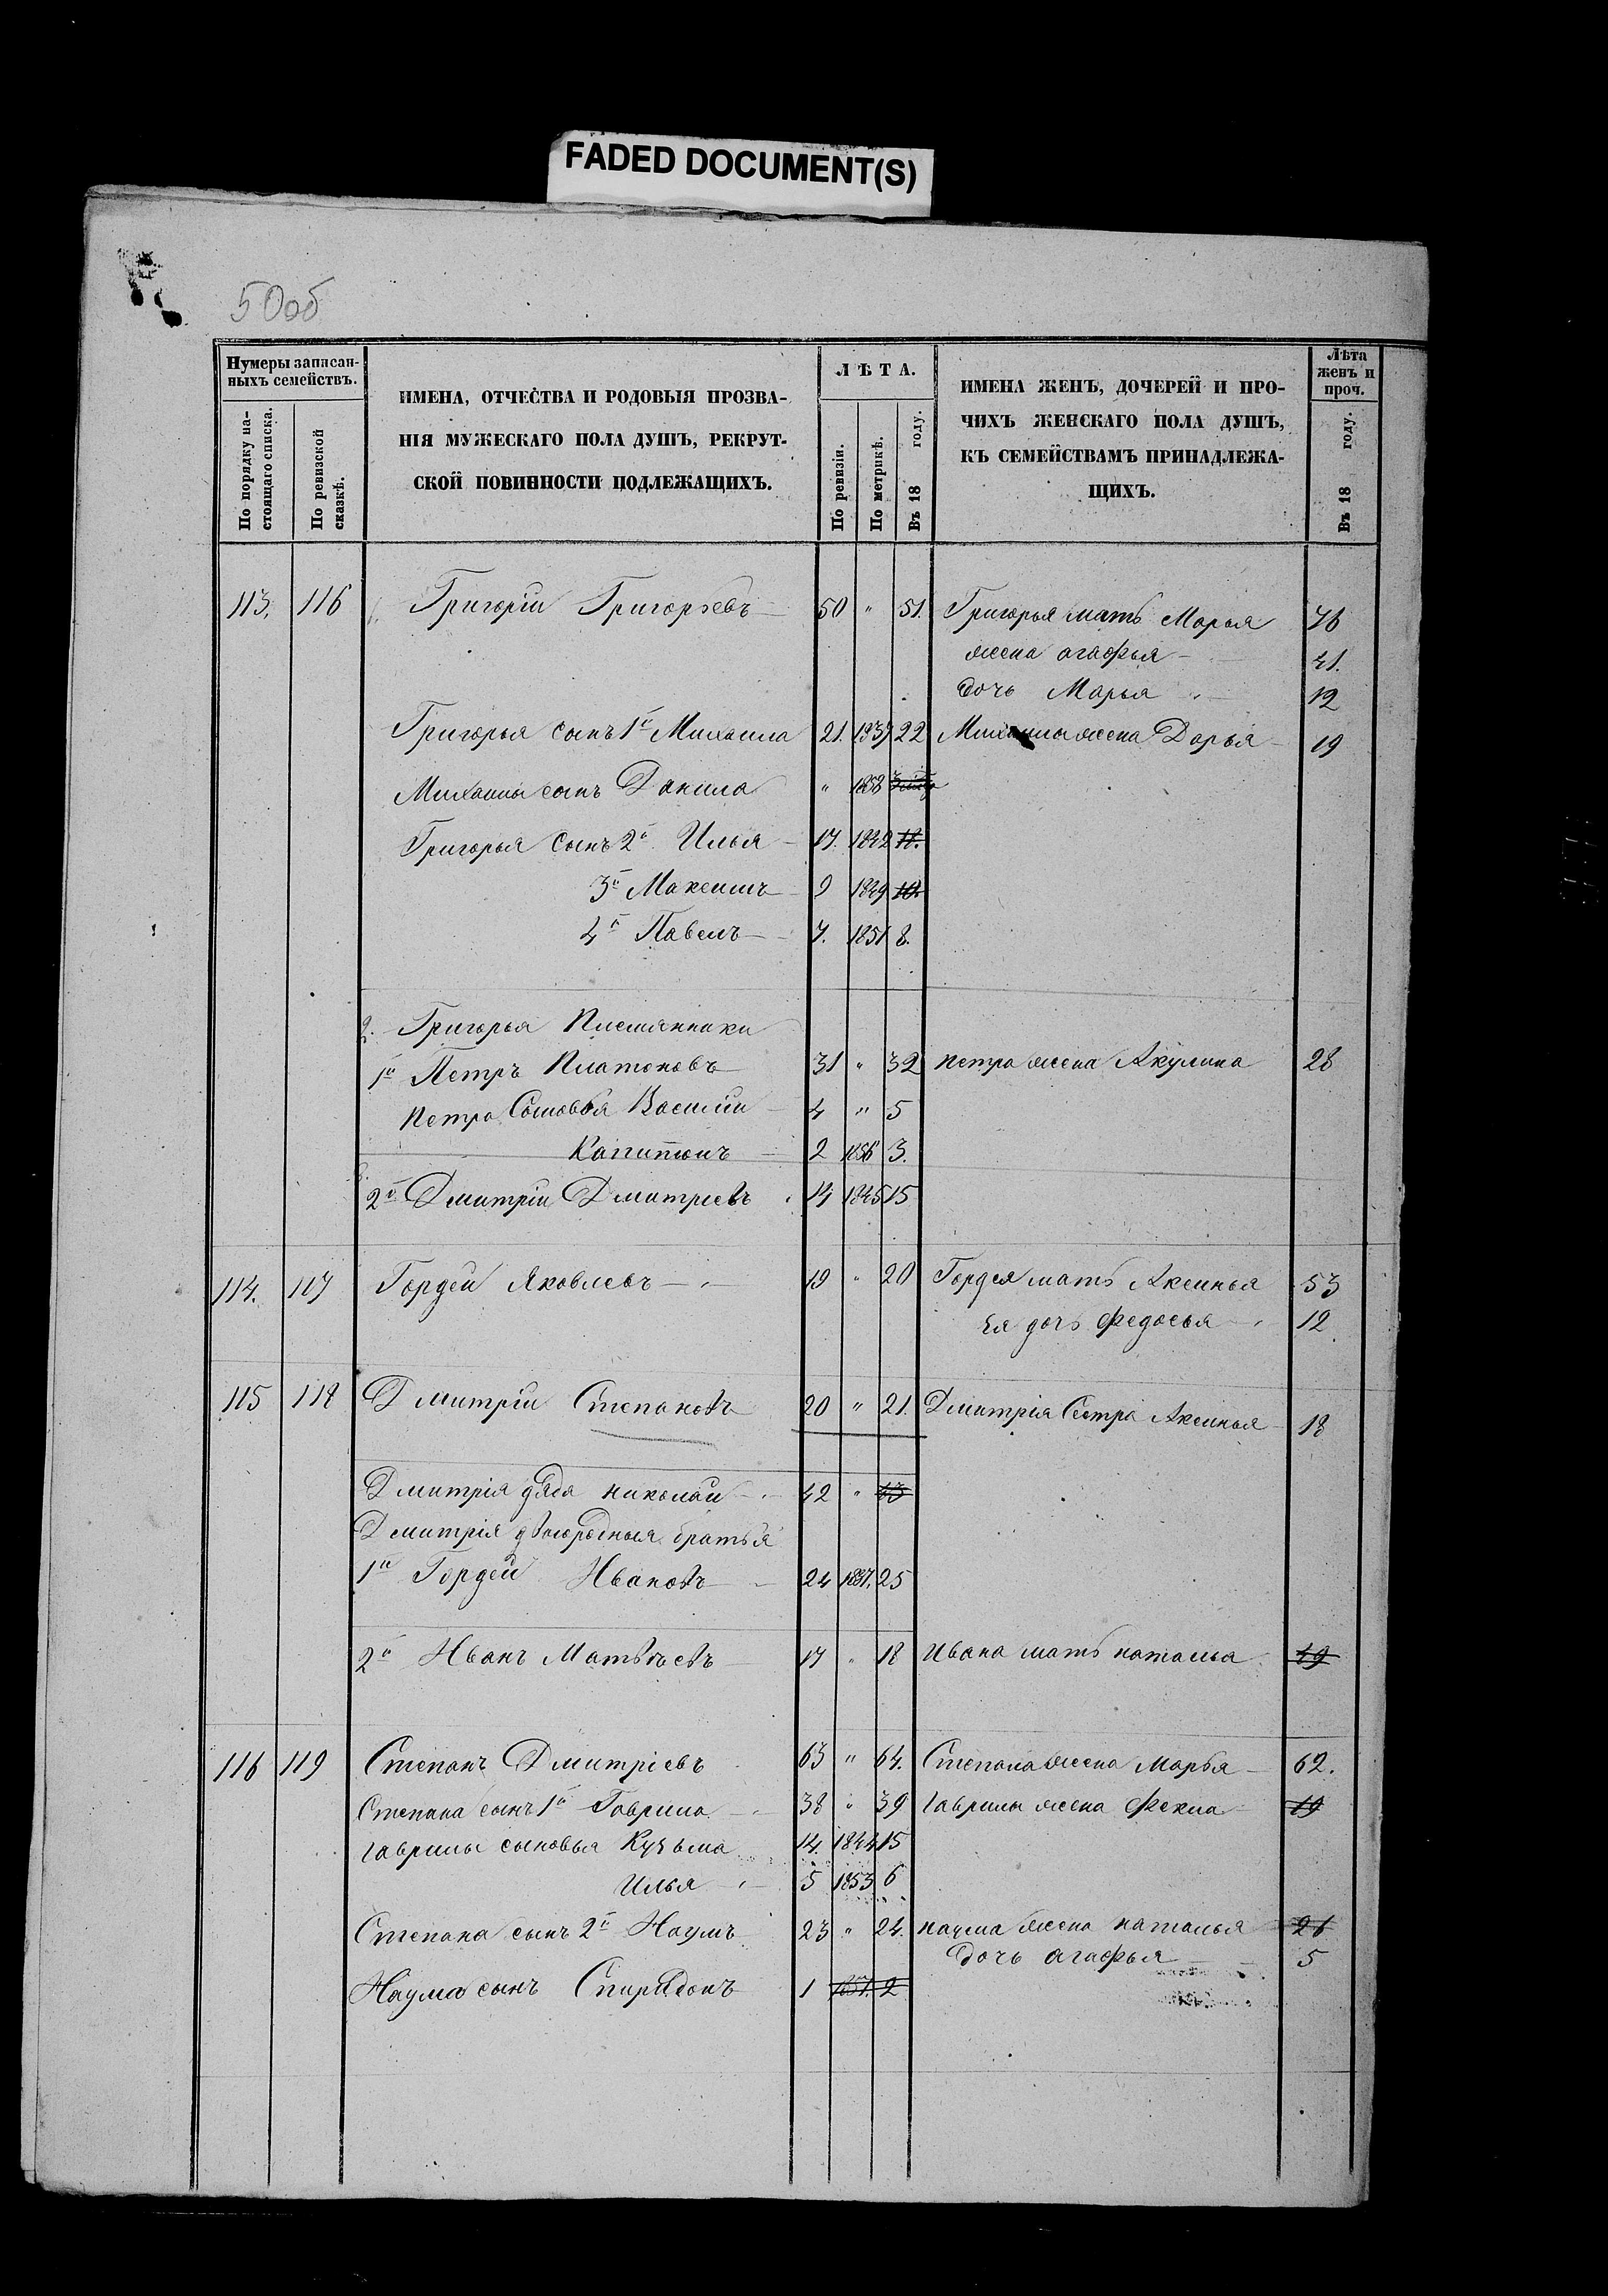 FADED DOCUMENT(S)
50об
Нумеры записан-
ныхъ семействъ.
По порядку на-
стоящаго списка.
По ревизской
сказкѣ.
ИМЕНА, ОТЧЕСТВА И РОДОВЫЯ ПРОЗВА-
НІЯ МУЖЕСКАГО ПОЛА ДУШЪ, РЕКРУТ-
СКОЙ ПОВИННОСТИ ПОДЛЕЖАЩИХЪ.
ЛѢТА.
По ревизіи.
По метрикѣ.
Въ 18 году.
ИМЕНА ЖЕНЪ, ДОЧЕРЕЙ И ПРО-
ЧИХЪ ЖЕНСКАГО ПОЛА ДУШЪ,
КЪ СЕМЕЙСТВАМЪ ПРИНАДЛЕЖА-
ЩИХЪ.
Лѣта
женъ и
проч.
Въ 18 году.
113. 116 Григорій Григорьевъ 50 " 51. Григорья мать Марья 76
жена агафья 41.
дочь Марья 12
Григорья сынъ 1й Михаила 21. 1837 22 Михаилы жена Дарья 19
Михаилы сынъ Данила " 1858
Григорья сынъ 2й Илья 17. 1842 18.
3й Максимъ 9 1849 10.
4й Павелъ 7. 1851 8.
2. Григорья Племянники
1й Петръ Платоновъ 31 " 32 петра жена Акулина 28
Петра Сыновья Василій 4 " 5
Капитонъ 2 1856 3.
2й Дмитрій Дмитріевъ 14 1845 15
114. 117 Гордей Яковлевъ 19 " 20 Гордея мать Аксинья 53
ея дочь Федосья 12
115 118 Дмитрій Степановъ 20 " 21. Дмитрія Сестра Аксинья 18
Дмитрія дядя николай 42 " 43
Дмитрія двоюродныя братья
1й Гордей Ивановъ 24 1837. 25
2й Иванъ Матвѣевъ 17 " 18 Ивана мать наталья 49
116 119 Степанъ Дмитріевъ 63 " 64. Степана жена Марья 62.
Степана сынъ 1й Гаврила 38 " 39 гаврилы жена Фекла 19
гаврилы сыновья Кузьма 14. 1844 15
Илья 5 1853 6
Степана сынъ 2й Наумъ 23 " 24. наума жена наталья 26
дочь агафья 5
Наума сынъ Спиридонъ 1 1857. 2